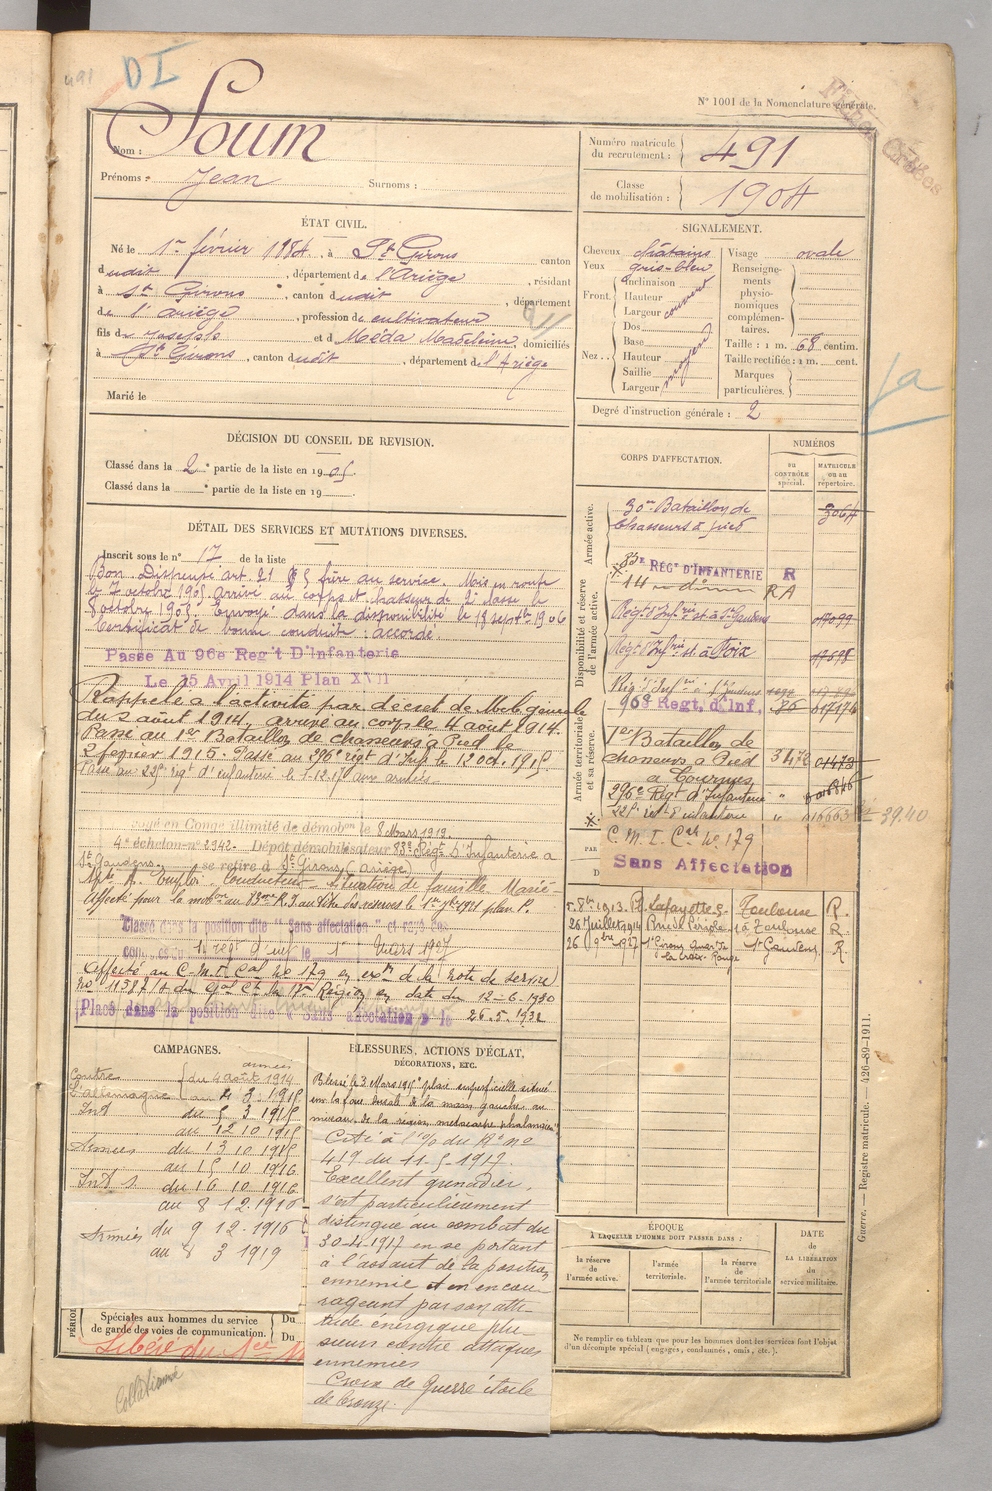 491
DI
N° 1001 de la Nomenclature générale.
Nom : Soum
Prénoms : Jean Surnoms :
Numéro matricule du recrutement : 491
Classe de mobilisation : 1904
ÉTAT CIVIL.
Né le 1er février 1884, à St Girons canton
dudit, département de l'Ariège, résidant
à St Girons, canton dudit, département
de l'Ariège, profession de cultivateur
fils de Joseph et de Méda Madeleine, domiciliés
à St Girons, canton dudit, département de l'Ariège
Marié le
SIGNALEMENT.
Cheveux châtains
Yeux gris-bleu
Front. Inclinaison
Hauteur
Largeur couvert
Nez.. Dos
Base
Hauteur moyen
Saillie
Largeur
Visage ovale
Renseignements physionomiques complémentaires.
Taille : 1 m. 68 centim.
Taille rectifiée : 1 m. cent.
Marques particulières.
Degré d'instruction générale : 2
DÉCISION DU CONSEIL DE REVISION.
Classé dans la 2e partie de la liste en 1905.
Classé dans la partie de la liste en 19
DÉTAIL DES SERVICES ET MUTATIONS DIVERSES.
Inscrit sous le n° 17 de la liste
Bon. Dispensé art. 21 § 5 frère au service. Mis en route
le 7 octobre 1905 arrivé au corps et chasseur de 2e classe le
8 octobre 1905. Envoyé dans la disponibilité le 18 septbre 1906
Certificat de bonne conduite : accordé.
Passé Au 96e Reg't D'Infanterie
Le 15 Avril 1914 Plan XVII
Rappelé à l'activité par décret de Mob. générale
du 2 août 1914, arrivé au corps le 4 août 1914.
Passé au 1er Bataillon de chasseurs à Pied le
2 février 1915. Passé au 296e régt d'Inf. le 12 oct. 1915
Passé au 221e régt d'infanterie le 1.12.17 aux armées
Congé illimité de démobon le 8 Mars 1919.
4e échelon n° 2942. Dépôt démobilisateur 83e Régt D'Infanterie à
St Gaudens se retire à St Girons (Ariège)
Emploi Conducteur - Situation de famille Marié
Affecté pour la mobon au 83me R.I. au titre des réserves le 1er 7bre 1921 plan P.
Classé dans la position dite "Sans affectation" et rayé des
Affecté au C.M.I. Cal No 179 en exon de la note de service
No 11587/1 du Gal Ct la 17e Région en date du 12-6-1930
Placé dans la position dite « Sans affectation » le 26.5.1932
CORPS D'AFFECTATION.
NUMÉROS
au CONTRÔLE spécial.
MATRICULE ou au répertoire.
Armée active.
30me Bataillon de
Chasseurs à pied 3064
Disponibilité et réserve de l'armée active.
83E RÉGT D'INFANTERIE R
14 RA
Régt d'Infrie st à St Gaudens 07099
Régt d'Infrie st. à Foix 17678
96e Regt. d'Inf. 86 017176
Armée territoriale et sa réserve.
1er Bataillon de
chasseurs à Pied 3472 01473
à Tournus
296e Régt d'Infanterie "
221e régt d'infanterie " 016663
C.M.I. Cal No 179
Sans Affectation
5. 8bre 1913. Pl. Lafayette 5. Toulouse R.
26 Juillet 1914 à Toulouse R.
26 9bre 1927 St Girons St Gaudens R.
la Croix-Rouge
CAMPAGNES.
Contre l'Allemagne
armées
du 4 août 1914
au 4 3 1915
Int du 5 3 1915
au 12 10 1915
Armées du 13 10 1915
au 15 10 1916
Intr du 16 10 1916
au 8 12 1916
Armées du 9 12 1916
au 8 3 1919
BLESSURES, ACTIONS D'ÉCLAT,
DÉCORATIONS, ETC.
Blessé le 3 Mars 1915 plaie superficielle située
sur la face dorsale de la main gauche au
niveau de la région métacarpo phalangienne
Cité à l'O/ du Rt no
419 du 11-5-1917
Excellent grenadier,
s'est particulièrement
distingué au combat du
30-4-1917 en se portant
à l'assaut de la position
ennemie et en encou-
rageant par son atti-
tude énergique plu-
sieurs contre attaques
ennemies
Croix de guerre étoile
de bronze.
ÉPOQUE
À LAQUELLE L'HOMME DOIT PASSER DANS :
la réserve de l'armée active.
l'armée territoriale.
la réserve de l'armée territoriale
DATE de LA LIBÉRATION du service militaire.
Ne remplir ce tableau que pour les hommes dont les services font l'objet
d'un décompte spécial (engagés, condamnés, omis, etc.).
Spéciales aux hommes du service
de garde des voies de communication.
Du
Du
Libéré du Sce
Collationné
Guerre. — Registre matricule. — 426-89-1911.